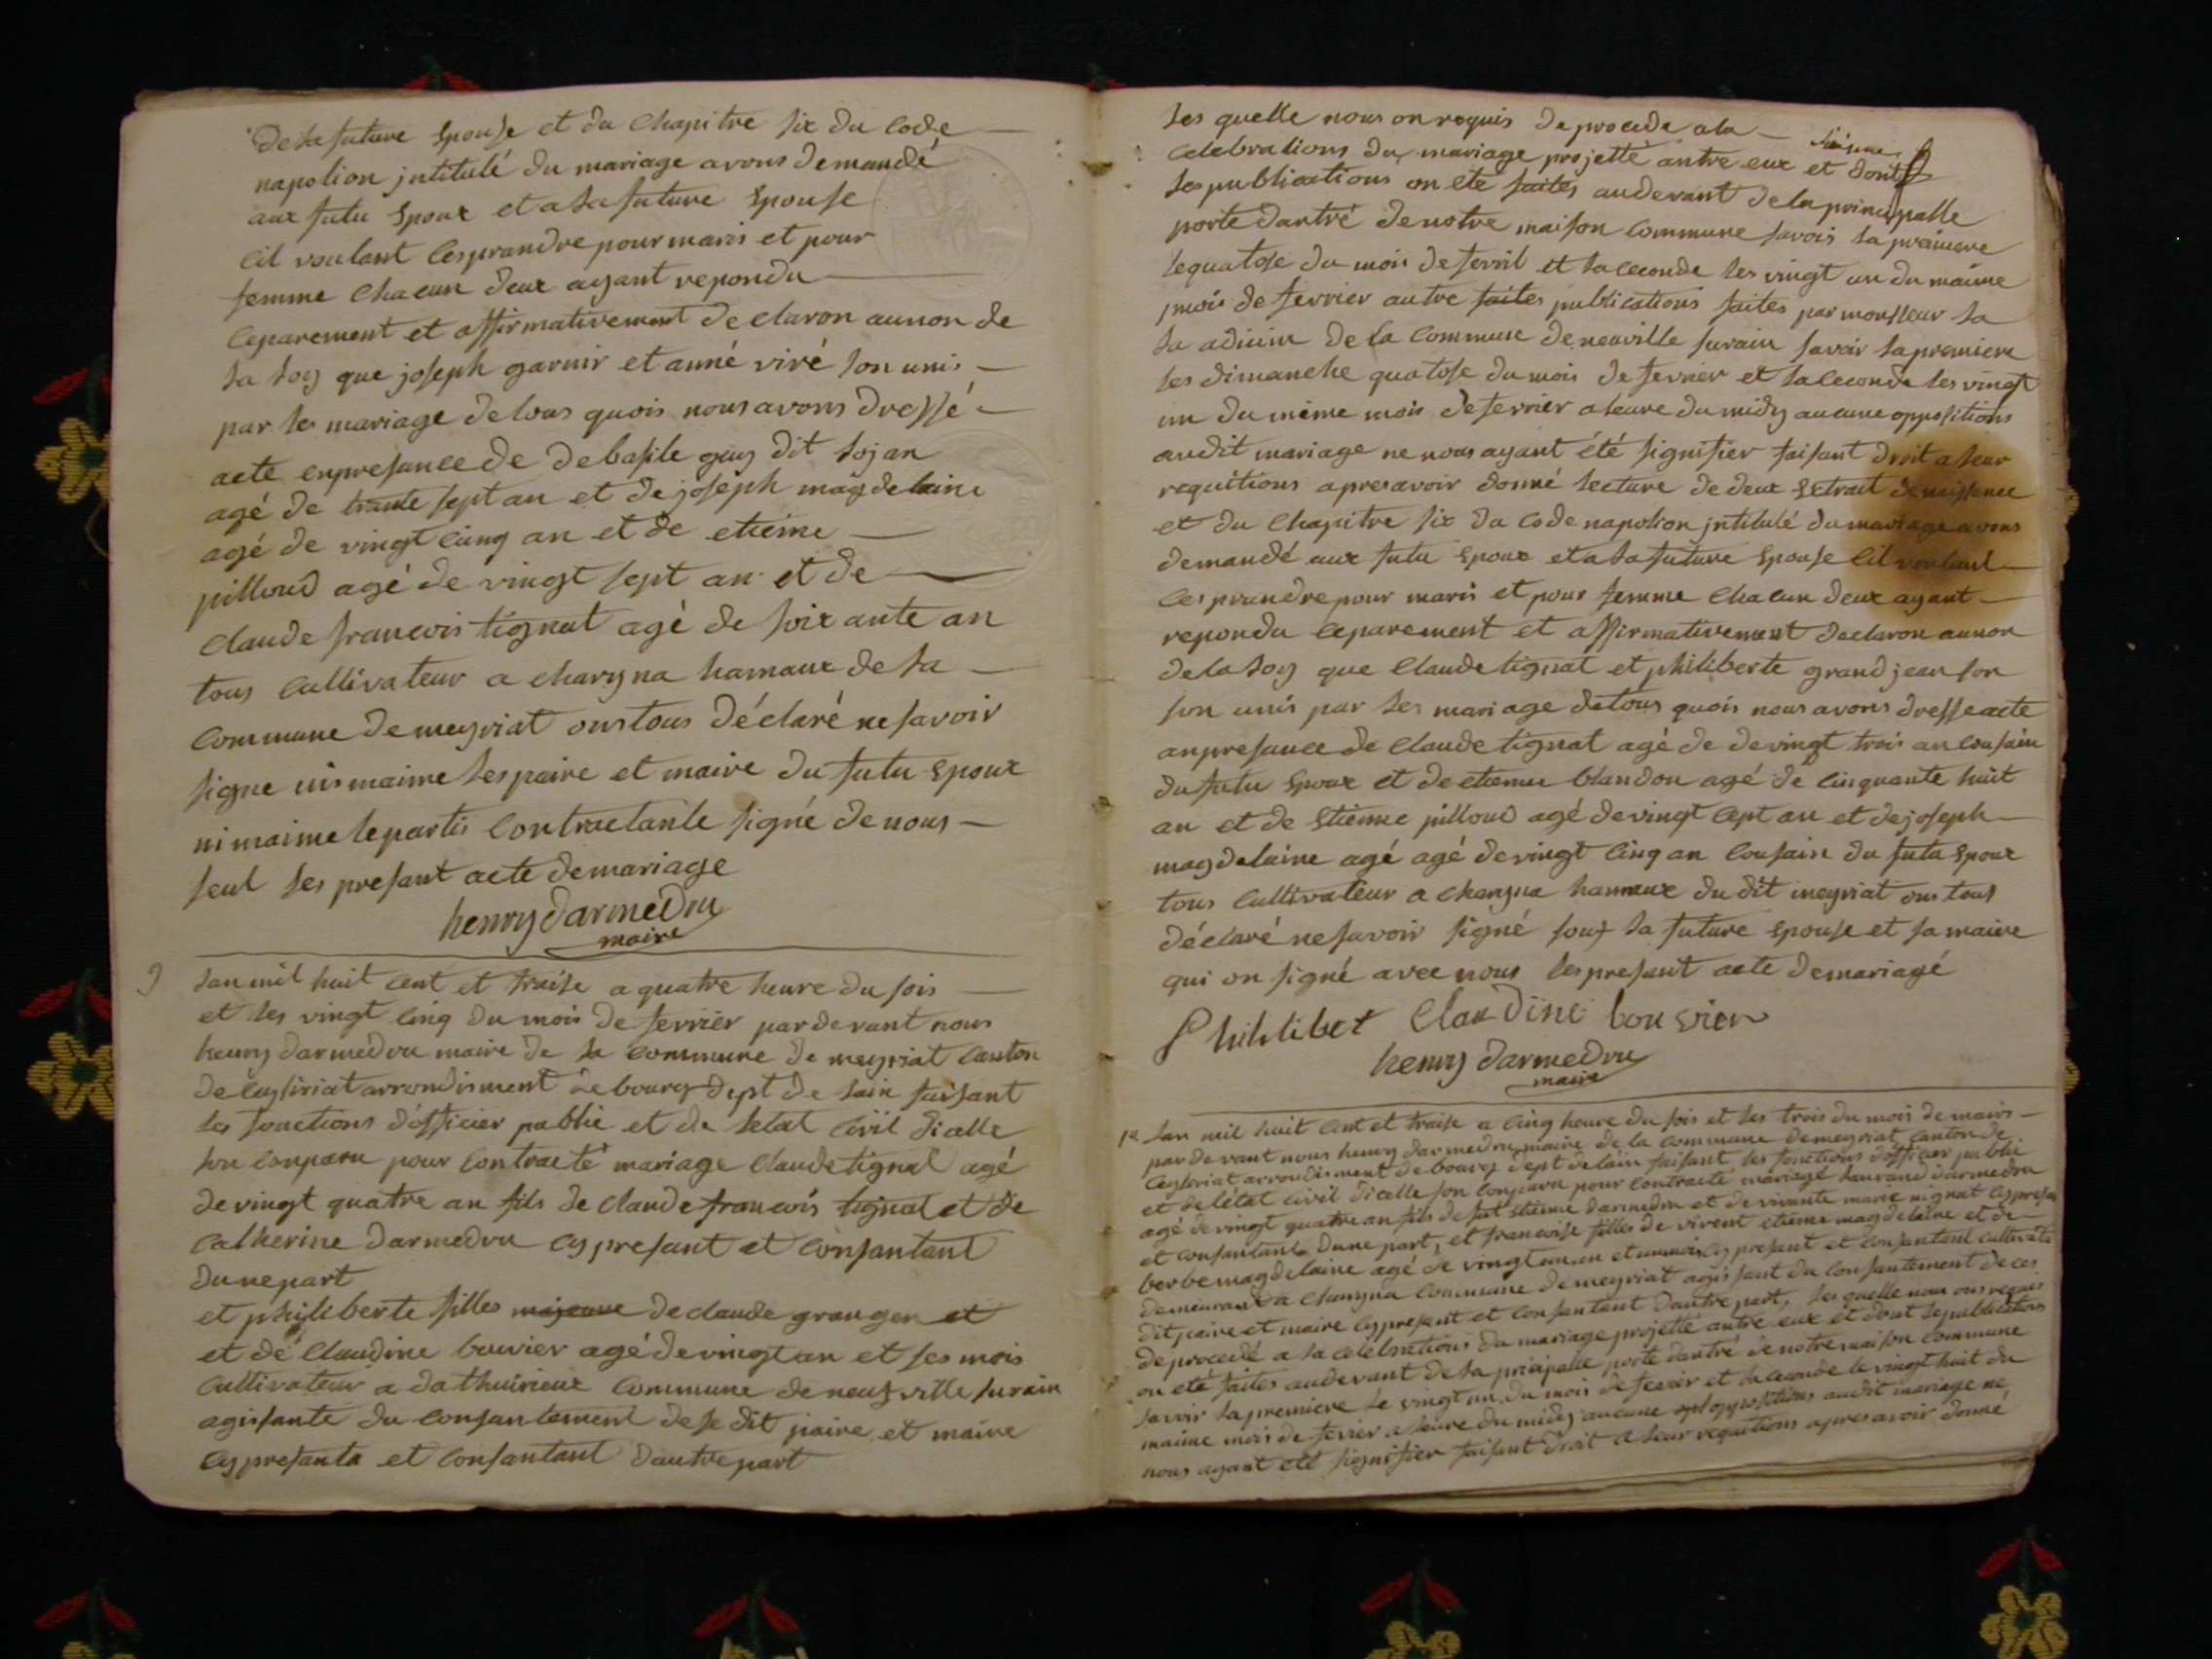 De la future Epouse et du Chapitre six du Code
napolion jntitulé du mariage avons demandé
aux futu Epoux et a la future Epouse
cil voulant les prandre pour maris et pour
femme Chacun deux ayant repondu
ceparement et affirmativement declaron aunon de
la loy que joseph garnir et anné viré son unis
par les mariage detous quois nous avons dressé
acte enpresance de debasile guy dit lojan
agé de trante sept an et de joseph magdelaine
agé de vingt cinq an et de etieine
pilloud agé de vingt sept an et de
Claude francois tignat agé de soixante an
tous Cultivateur a charyna hamaux de la
Commune de meyriat ons tous déclaré ne savoir
signe nis maime les paire et maire du futu Epoux
ni maime le partis Contractante signé de nous
seul les presant acte demariage
henry darmedru
maire
9 Lan mil huit cent et traise a quatre heure du sois
et les vingt cinq du mois de ferrier par devant nous
henry darmedru maire de la commune de meyriat Canton
de ceyseriat arrondisment de bourg dept de lain faisant
les fonctions dofficier public et de letat Civil dicelle
son conparu pour Contracté mariage Claude tignat agé
de vingt quatre an fils de Claude francois tignat et de
Catherine darmedru cy presant et Consantant
dune part
et philiberte filles majeure de claude granger et
et de Claudine bouvier agé de vingt an et ses mois
Cultivateur a dathuirieux Commune de neufville surain
agissante du Consantement de se dit paire et maire
cy presanta et Consantant dautre part
Les quelle nous on requis de procede a la
Celebrations du mariage projetté antre eux et dont
les publications on ete faites audevant de la principalle
porte dantré de notre maison Commune savois la praimiere
lequatose du mois de fevril et la ceconde les vingt un du maime
mois de ferrier autre faites publications faites par monsieur la
la adjoin de la Commune de neuville surain savoir la premiere
les dimanche quatose du mois de ferrier et la ceconde les vingt
un du même mois de ferrier a leure du midy aucune oppositions
audit mariage ne nous ayant été signifier faisant droit a leur
requitions apres avoir donné lecture de deux Extrait de naissance
et du Chapitre six du Code napolion jntitulé du mariage avons
demandé aux futu Epoux et a la future Epouse cil voulant
les prandre pour maris et pour femme Chacun deux ayant
repondu ceparement et affirmativement declaron aunon
de la loy que Claude tignat et philiberte grand jean son
son unis par les mariage detous quois nous avons dresse acte
anpresance de Claude tignat agé de devingt trois an cousain
du futu Epoux et de etienne blandon agé de cinquante huit
an et de Etienne pilloud agé de vingt cept an et de joseph
magdelaine agé agé de vingt cinq an Cousain du futu Epoux
tous Cultivateur a chanyna hamaux du dit meyriat ons tous
déclaré ne savoir signé souf la future Epouse et sa maire
qui on signé avec nous les presant acte demariagé
Philibet Claudine bouvier
henry darmedru
maire
Lan mil huit Cent et traise a cinq heure du sois et les trois du mois de mairs
par devant nous henry darmedru maire de la Commune de meyriat canton de
Ceyseriat arrondisment de bourg dept de lain faisant les fonctions dofficier public
et de létat Civil dicelle son Conparu pour Contracté mariage Laurand darmedru
agé de vingt quatre an fils de fut Etienne darmedru et de vivante marie mignat cy presan
et consantant dune part, et francoise filles de vivent etienne magdelaine et de
berbe magdelaine agé de vingt un an et unmois cy presant et Consantant cultivate
demeurant a chanyna Commune de meyriat agissant du Consantement de ces
dit paire et maire cy presant et Consantant dautre part, les quelle nous ons requis
de procedé a la celebrations du mariage projetté antre eux et dont le publications
on eté faites audevant de la pricipalle porte dantré de notre maison Commune
savoir la premiere le vingt un du mois de fevrir et la ceconde le vingt huit du
maime mois de ferrier a leure du midy aucune oppositions audit mariage ne
nous ayant eté signifier faisant droit a leur requitions apres avoir donné